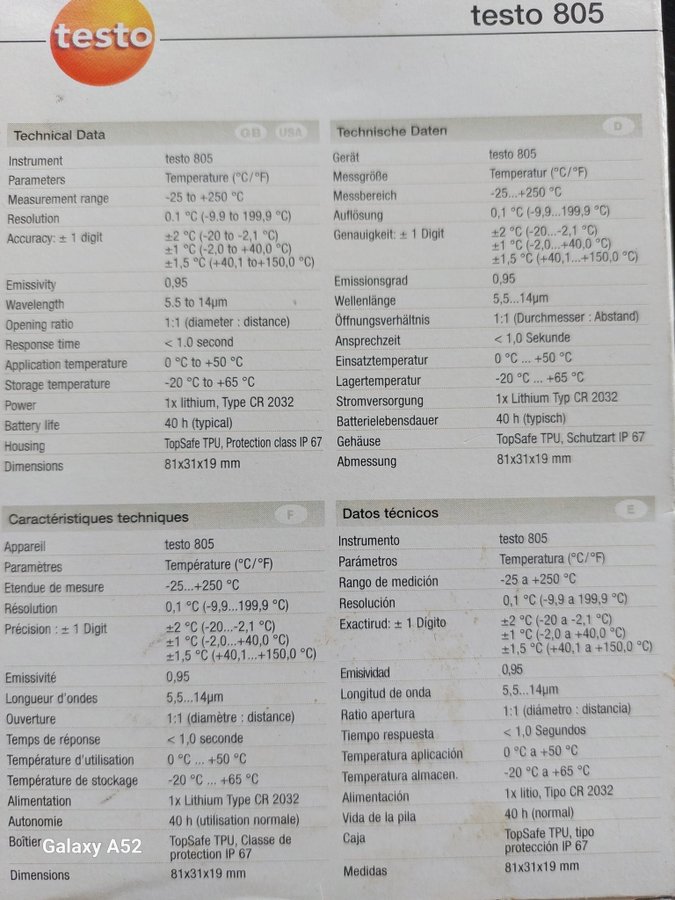 testo
testo 805
Technical Data GB USA
Instrument testo 805
Parameters Temperature (°C/°F)
Measurement range -25 to +250 °C
Resolution 0.1 °C (-9,9 to 199,9 °C)
Accuracy: ± 1 digit ±2 °C (-20 to -2,1 °C)
±1 °C (-2,0 to +40,0 °C)
±1,5 °C (+40,1 to+150,0 °C)
Emissivity 0,95
Wavelength 5.5 to 14µm
Opening ratio 1:1 (diameter : distance)
Response time < 1.0 second
Application temperature 0 °C to +50 °C
Storage temperature -20 °C to +65 °C
Power 1x lithium, Type CR 2032
Battery life 40 h (typical)
Housing TopSafe TPU, Protection class IP 67
Dimensions 81x31x19 mm
Technische Daten D
Gerät testo 805
Messgröße Temperatur (°C/°F)
Messbereich -25...+250 °C
Auflösung 0,1 °C (-9,9...199,9 °C)
Genauigkeit: ± 1 Digit ±2 °C (-20...-2,1 °C)
±1 °C (-2,0...+40,0 °C)
±1,5 °C (+40,1...+150,0 °C)
Emissionsgrad 0,95
Wellenlänge 5,5...14µm
Öffnungsverhältnis 1:1 (Durchmesser : Abstand)
Ansprechzeit < 1,0 Sekunde
Einsatztemperatur 0 °C ... +50 °C
Lagertemperatur -20 °C ... +65 °C
Stromversorgung 1x Lithium Typ CR 2032
Batterielebensdauer 40 h (typisch)
Gehäuse TopSafe TPU, Schutzart IP 67
Abmessung 81x31x19 mm
Caractéristiques techniques F
Appareil testo 805
Paramètres Température (°C/°F)
Etendue de mesure -25...+250 °C
Résolution 0,1 °C (-9,9...199,9 °C)
Précision : ± 1 Digit ±2 °C (-20...-2,1 °C)
±1 °C (-2,0...+40,0 °C)
±1,5 °C (+40,1...+150,0 °C)
Emissivité 0,95
Longueur d'ondes 5,5...14µm
Ouverture 1:1 (diamètre : distance)
Temps de réponse < 1,0 seconde
Température d'utilisation 0 °C ... +50 °C
Température de stockage -20 °C ... +65 °C
Alimentation 1x Lithium Type CR 2032
Autonomie 40 h (utilisation normale)
Boîtier TopSafe TPU, Classe de
protection IP 67
Dimensions 81x31x19 mm
Datos técnicos E
Instrumento testo 805
Parámetros Temperatura (°C/°F)
Rango de medición -25 a +250 °C
Resolución 0,1 °C (-9,9 a 199,9 °C)
Exactirud: ± 1 Dígito ±2 °C (-20 a -2,1 °C)
±1 °C (-2,0 a +40,0 °C)
±1,5 °C (+40,1 a +150,0 °C)
Emisividad 0,95
Longitud de onda 5,5...14µm
Ratio apertura 1:1 (diámetro : distancia)
Tiempo respuesta < 1,0 Segundos
Temperatura aplicación 0 °C a +50 °C
Temperatura almacen. -20 °C a +65 °C
Alimentación 1x litio, Tipo CR 2032
Vida de la pila 40 h (normal)
Caja TopSafe TPU, tipo
protección IP 67
Medidas 81x31x19 mm
Galaxy A52